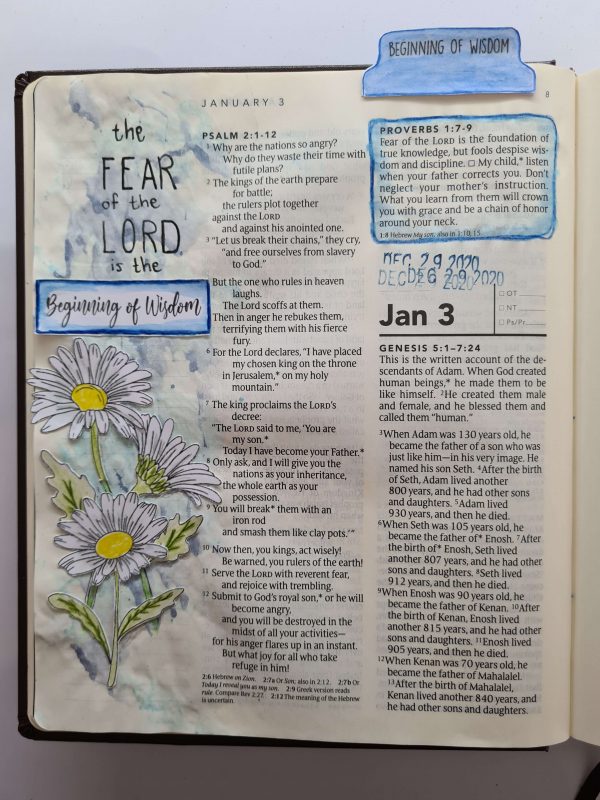 BEGINNING OF WISDOM
JANUARY 3
8
the
FEAR
of the
LORD
is the
Beginning of Wisdom
PSALM 2:1-12
1 Why are the nations so angry?
Why do they waste their time with
futile plans?
2 The kings of the earth prepare
for battle;
the rulers plot together
against the LORD
and against his anointed one.
3 “Let us break their chains,” they cry,
“and free ourselves from slavery
to God.”
But the one who rules in heaven
laughs.
The Lord scoffs at them.
Then in anger he rebukes them,
terrifying them with his fierce
fury.
6 For the Lord declares, “I have placed
my chosen king on the throne
in Jerusalem,* on my holy
mountain.”
7 The king proclaims the LORD’s
decree:
“The LORD said to me, ‘You are
my son.*
Today I have become your Father.*
8 Only ask, and I will give you the
nations as your inheritance,
the whole earth as your
possession.
9 You will break* them with an
iron rod
and smash them like clay pots.’”
10 Now then, you kings, act wisely!
Be warned, you rulers of the earth!
11 Serve the LORD with reverent fear,
and rejoice with trembling.
12 Submit to God’s royal son,* or he will
become angry,
and you will be destroyed in the
midst of all your activities—
for his anger flares up in an instant.
But what joy for all who take
refuge in him!
2:6 Hebrew on Zion. 2:7a Or Son; also in 2:12. 2:7b Or
Today I reveal you as my son. 2:9 Greek version reads
rule. Compare Rev 2:27. 2:12 The meaning of the Hebrew
is uncertain.
PROVERBS 1:7-9
Fear of the LORD is the foundation of
true knowledge, but fools despise wis-
dom and discipline. □ My child,* listen
when your father corrects you. Don’t
neglect your mother’s instruction.
What you learn from them will crown
you with grace and be a chain of honor
around your neck.
1:8 Hebrew My son; also in 1:10, 15.
DEC 29 2020
DEC 29 2020
Jan 3
□ OT
□ NT
□ Ps/Pr
GENESIS 5:1–7:24
This is the written account of the de-
scendants of Adam. When God created
human beings,* he made them to be
like himself. 2 He created them male
and female, and he blessed them and
called them “human.”
3 When Adam was 130 years old, he
became the father of a son who was
just like him—in his very image. He
named his son Seth. 4 After the birth
of Seth, Adam lived another
800 years, and he had other sons
and daughters. 5 Adam lived
930 years, and then he died.
6 When Seth was 105 years old, he
became the father of* Enosh. 7 After
the birth of* Enosh, Seth lived
another 807 years, and he had other
sons and daughters. 8 Seth lived
912 years, and then he died.
9 When Enosh was 90 years old, he
became the father of Kenan. 10 After
the birth of Kenan, Enosh lived
another 815 years, and he had other
sons and daughters. 11 Enosh lived
905 years, and then he died.
12 When Kenan was 70 years old, he
became the father of Mahalalel.
13 After the birth of Mahalalel,
Kenan lived another 840 years, and
he had other sons and daughters.